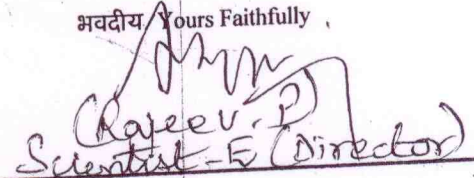 भवदीय Yours Faithfully
(Rajeev. P)
Scientist-E (Director)